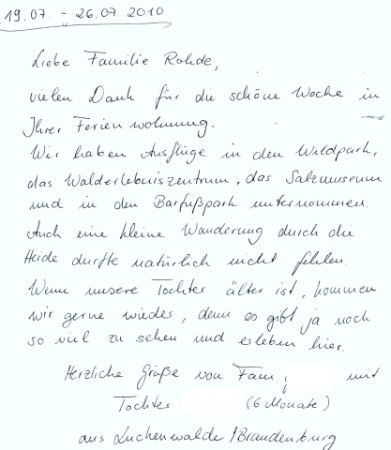 19.07. - 26.07.2010
Liebe Familie Rohde,
vielen Dank für die schöne Woche in
Ihrer Ferienwohnung.
Wir haben Ausflüge in den Wildpark,
das Walderlebniszentrum, das Salzmuseum
und in den Barfußpark unternommen.
Auch eine kleine Wanderung durch die
Heide durfte natürlich nicht fehlen.
Wenn unsere Tochter älter ist, kommen
wir gerne wieder, denn es gibt ja noch
so viel zu sehen und erleben hier.
Herzliche Grüße von Fam. mit
Tochter (6 Monate)
aus Luckenwalde / Brandenburg